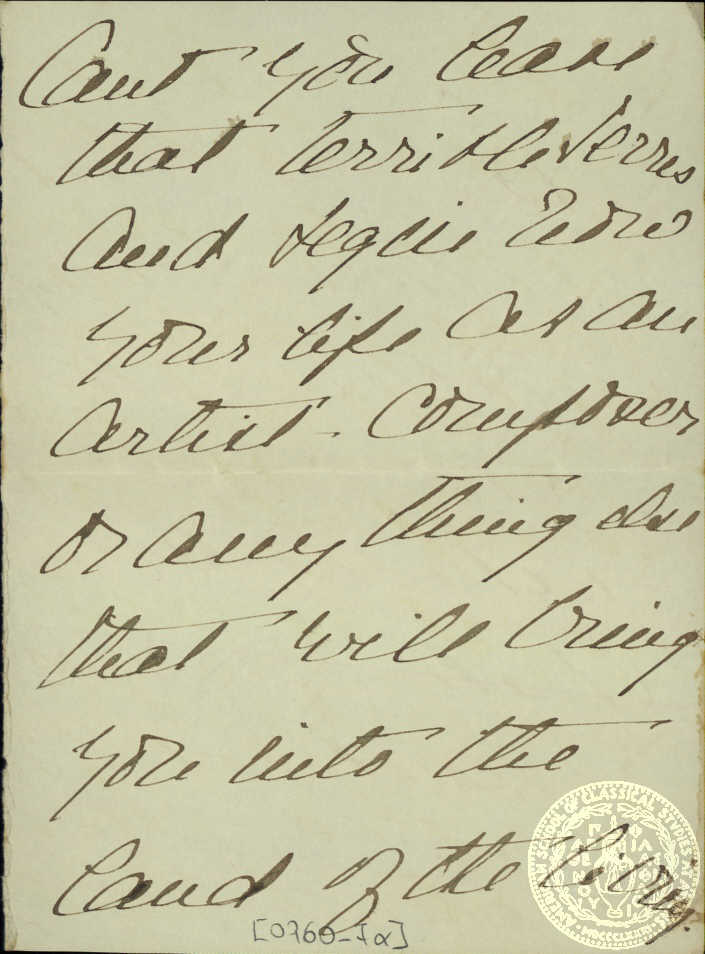 Cant you leave
that terrible
and begin now
your life as an
artist - composer
or any thing else
that will bring
you into the
land of the living.
AMERICAN SCHOOL OF CLASSICAL STUDIES AT
MDCCCLXXXI